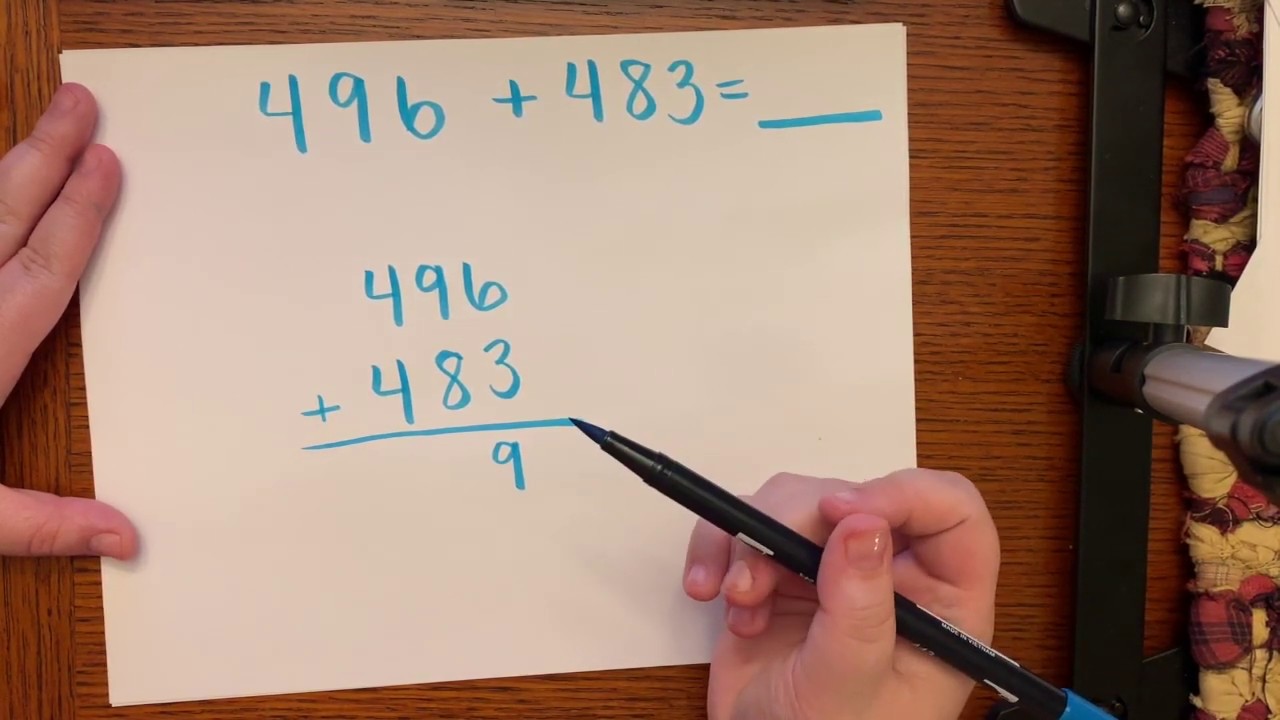 496 + 483 = ___
496
+ 483
9
MADE IN VIETNAM